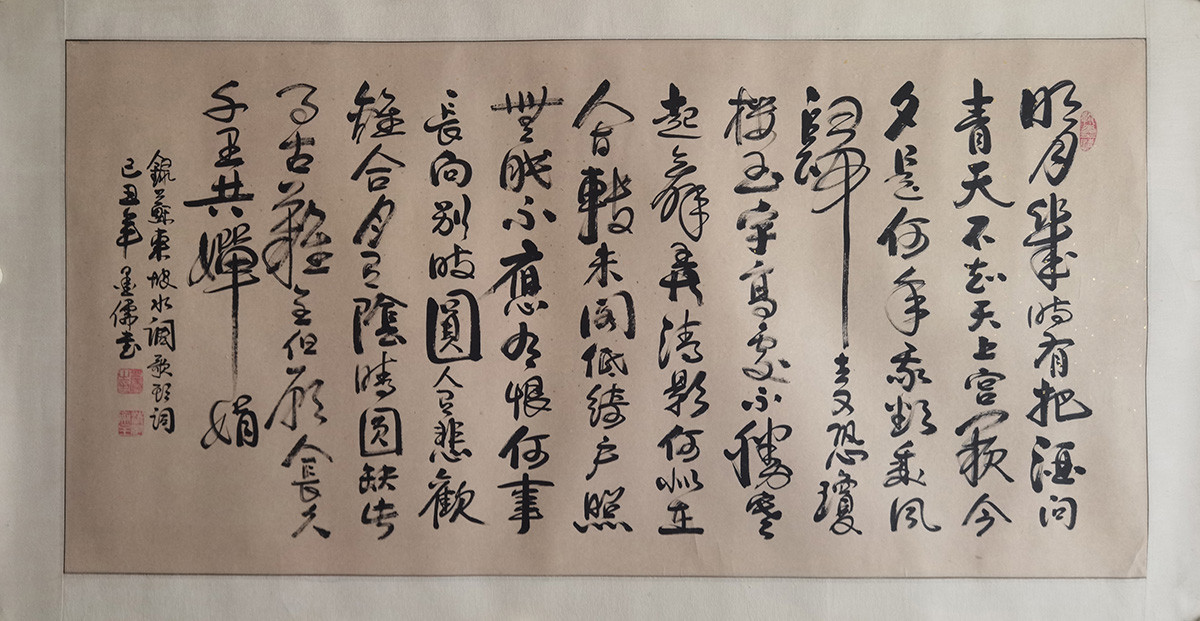 明月幾時有把酒問
青天不知天上宮闕今
夕是何年我欲乘風
歸去又恐瓊
樓玉宇高處不勝寒
起舞弄清影何似在
人間轉朱閣低綺戶照
無眠不應有恨何事
長向別時圓人有悲歡
離合月有陰晴圓缺此
事古難全但願人長久
千里共嬋娟
錄蘇東坡水調歌頭詞
己丑年墨儒書